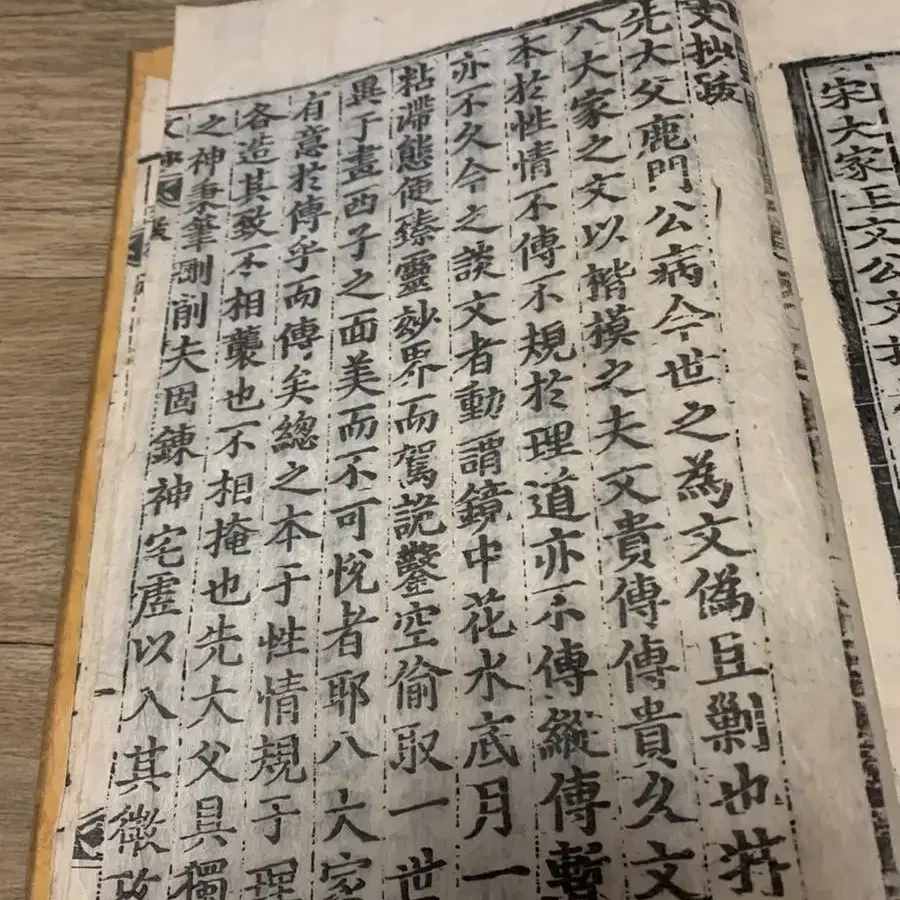 宋大家王文公文抄
文抄跋
先大父鹿門公病今世之為文偽且剿也特
八大家之文以揩模之夫文貴傳傳貴久文
本於性情不傳不規於理道亦不傳縱傳暫
亦不久今之談文者動謂鏡中花水底月一
粘滯態使臻靈玅界而駕詭鑿空偷取一世
異于畫西子之面美而不可悅者耶八大家
有意於傳乎而傳矣總之本于性情規于理
各造其致不相襲也不相掩也先大父具獨
之神秉筆刪削夫固鍊神宅虛以入其微故
文抄 跋 一